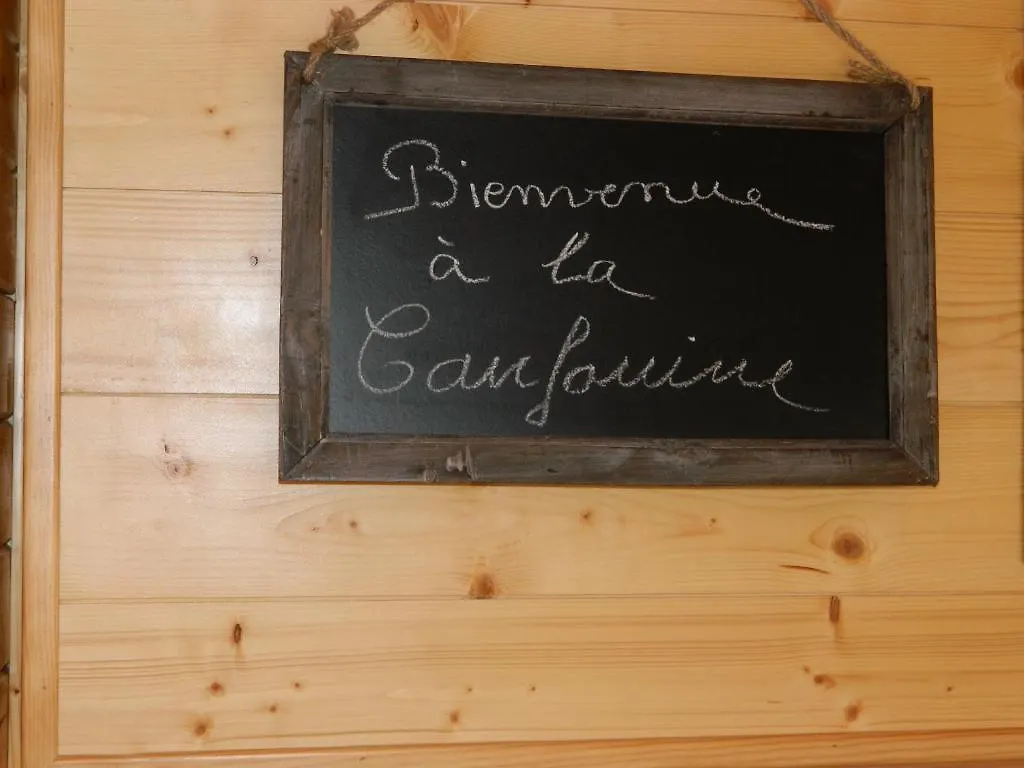 Bienvenue
à la
Canfouine